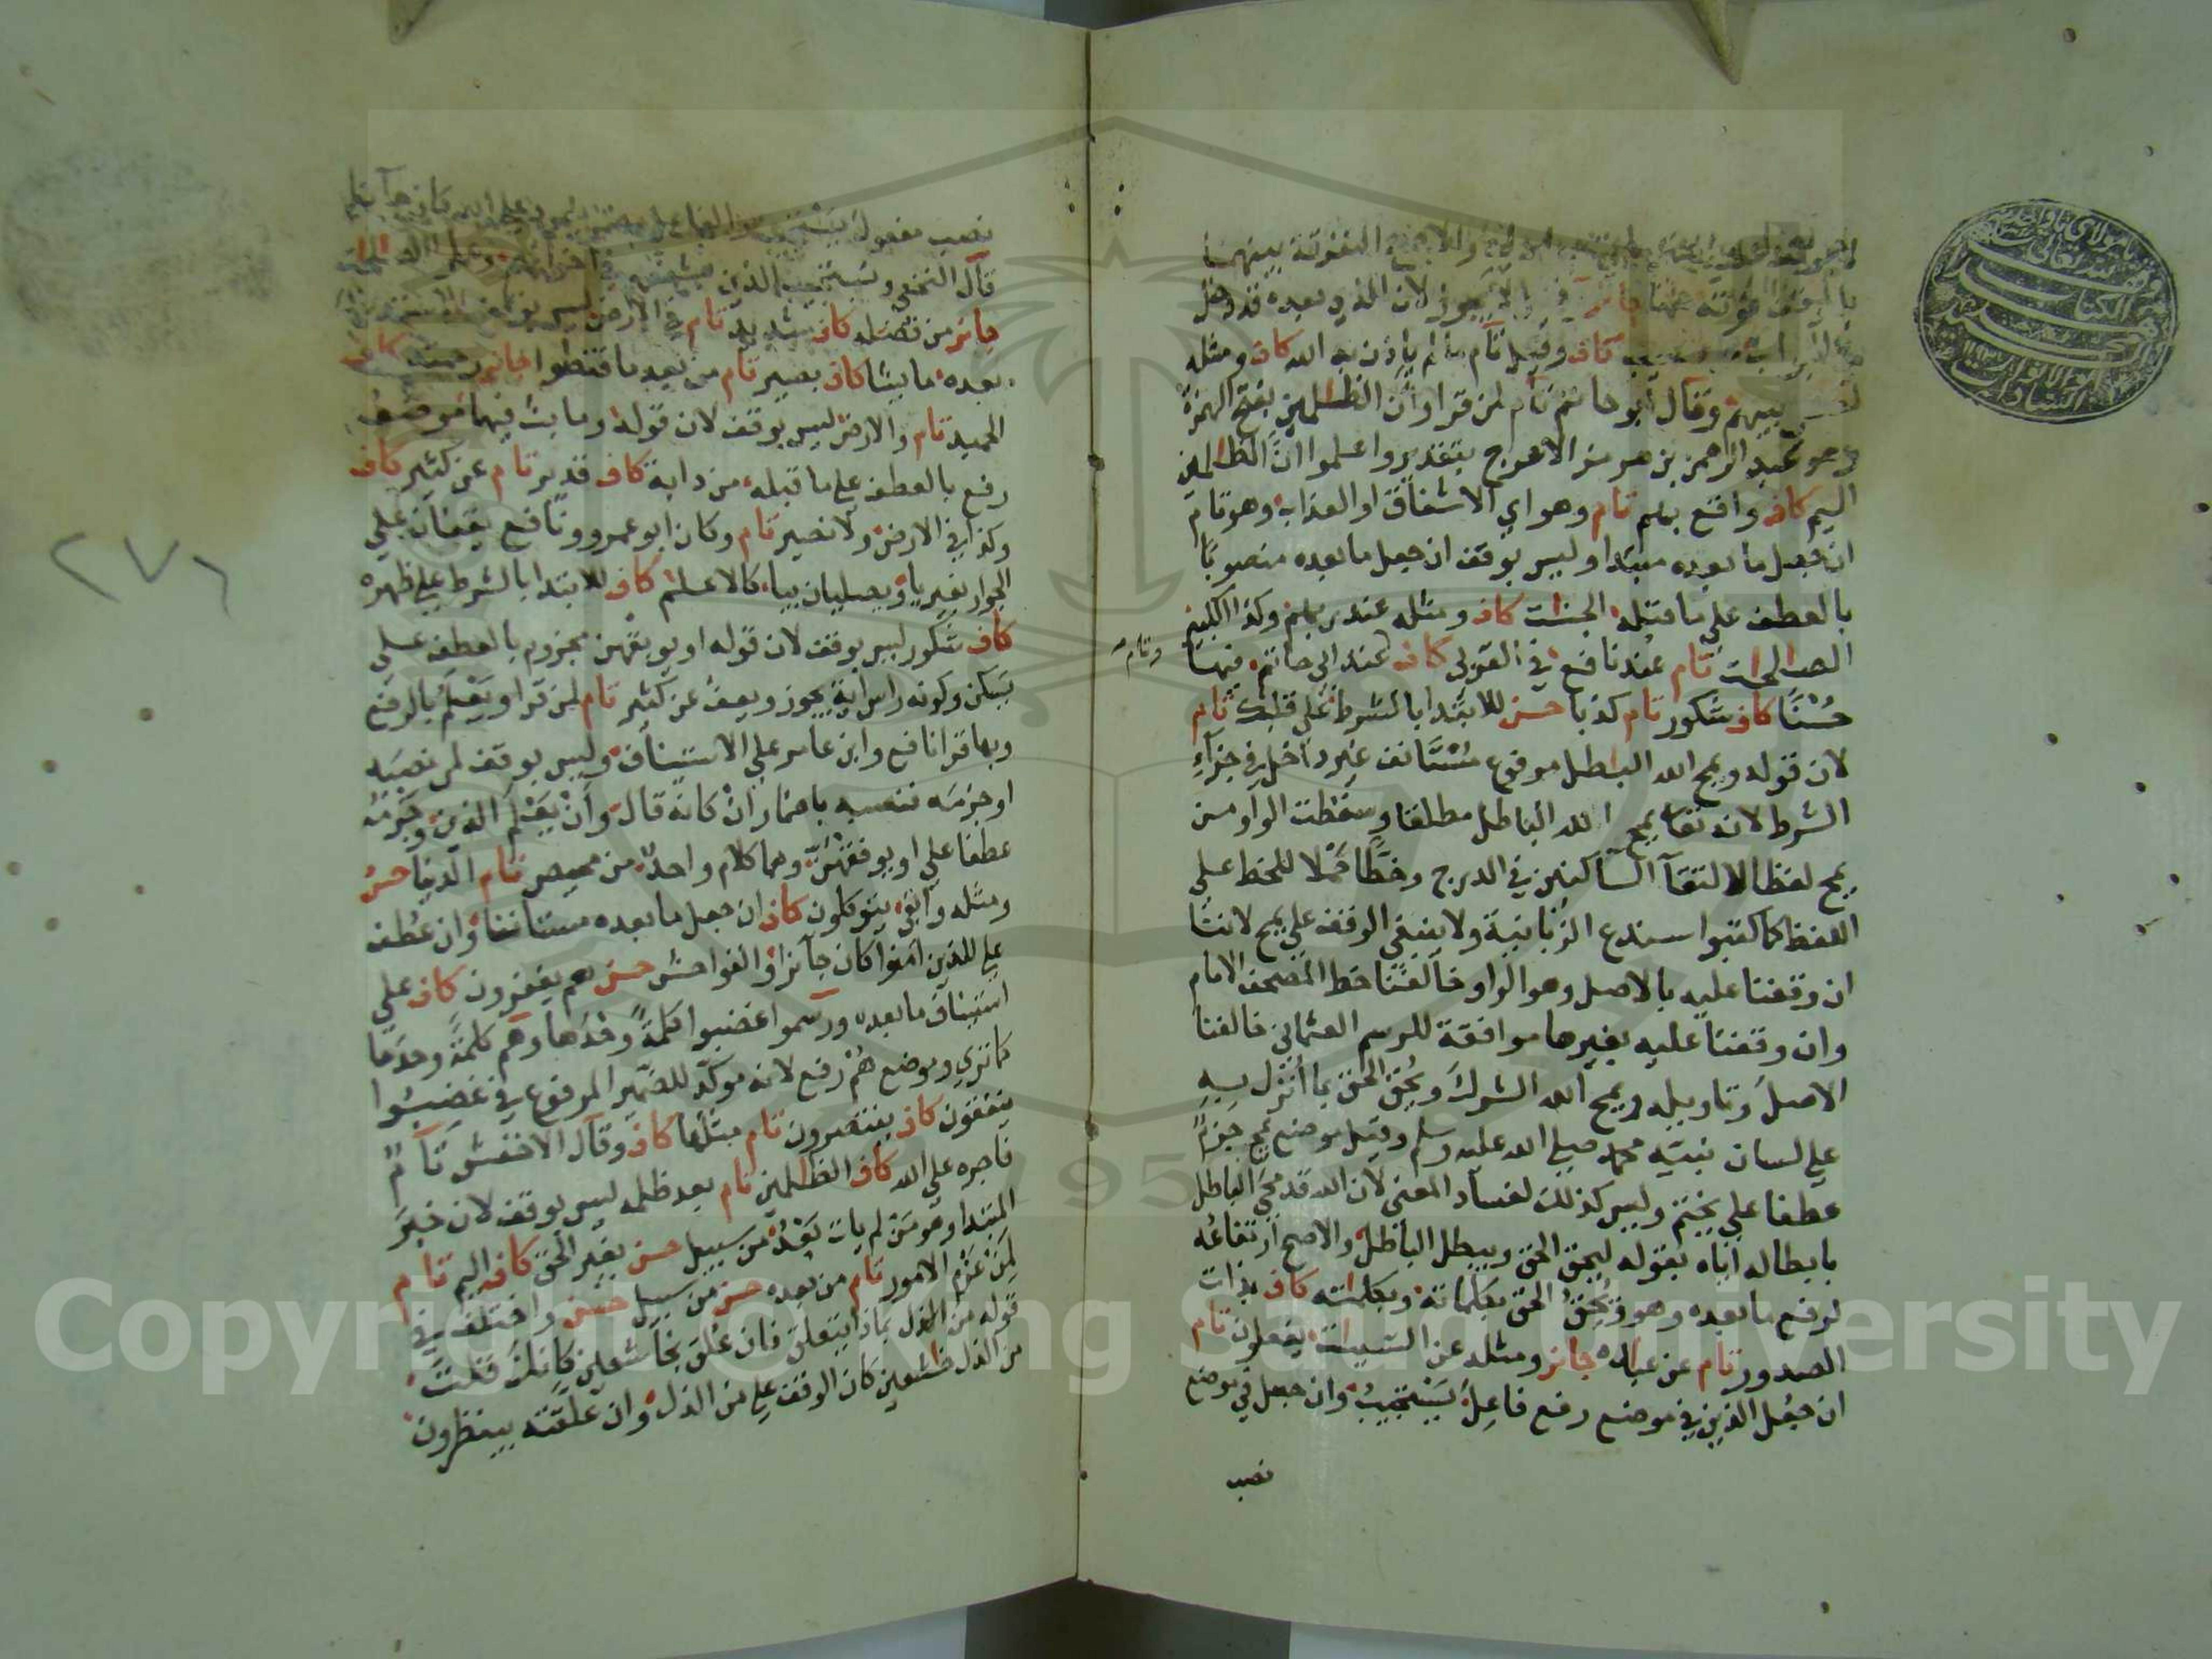 بالوقف مؤتنه جائز لان الذي بعده قد دخل
كاف وقيل تام ما لم ياذن به الله كاف ومثله
بينهم وقال ابو حاتم تام لمن قرا وأن الظلمين بفتح الهمزة
وهو عبد الرحمن بن هرمز الاعرج بتقدير واعلموا ان الظلمين
اليم كاف واقع بهم تام وهو اي الاشفاق او العذاب وهو تام
ان جعل ما بعده مبتدا وليس بوقف ان جعل ما بعده منصوبا
بالعطف على ما قبله الجنات كاف ومثله عند ربهم وكذا الكبير
الصالحات تام عند نافع في القربى كاف عند ابي حاتم فيها
وتام
حسنا كاف شكور تام كذبا حسن للابتدا بالشرط على قلبك تام
لان قوله ويمح الله البطل مرفوع مستانف غير داخل في جزاء
الشرط لانه تعالى يمح الله الباطل مطلقا وسقطت الواو من
يمح لفظا لالتقآ الساكنين في الدرج وخطا حملا للخط على
اللفظ كما كتبوا سندع الزبانية ولا ينبغي الوقف على يمح لاننا
ان وقفنا عليه بالاصل وهو الواو خالفنا خط المصحف الامام
وان وقفنا عليه بغيرها موافقة للرسم العثماني خالفنا
الاصل وتاويله ويمح الله الشرك ويحق الحق بما أنزل به
على لسان نبيه محمد صلى الله عليه وسلم وقيل موضع يمح جزم
عطفا على يختم وليس كذلك لفساد المعنى لان الله قد محى الباطل
بابطاله اياه بقوله ليحق الحق ويبطل الباطل والاصح ارتفاعه
لرفع ما بعده وهو ويحق الحق بكلماته وبكلمته كاف بذات
الصدور تام عن عباده جائز ومثله عن السيئات يفعلون تام
ان جعل الذين في موضع رفع فاعل يستجيب وان جعل في موضع
نصب
نصب مفعول يستجيب والفاعل
قال النخعي ويستجيب الذين
جائز من فضله كاف شديد تام في الارض ليس بوقف
بعده ما يشا كاف بصير تام من بعد ما قنطوا جائز رحمته كاف
الحميد تام والارض ليس بوقف لان قوله وما بث فيهما موضعه
رفع بالعطف على ما قبله من دابة كاف قدير تام عن كثير كاف
وكذا في الارض ولا نصير تام وكان ابو عمرو ونافع يقفان على
الجوار بغير يا ويصلان بيا كالاعلام كاف للابتدا بالشرط على ظهره
كاف شكور ليس بوقف لان قوله او يوبقهن مجزوم بالعطف على
يسكن وكونه راس اية يجوز ويعف عن كثير تام لمن قرا ويعلم بالرفع
وبها قرا نافع وابن عامر على الاستئناف وليس بوقف لمن نصبه
او جزمه فنصبه باضمار ان كانه قال وأن يعلم الذين وجزمه
عطفا على او يوبقهن وهما كلام واحد من محيص تام الدنيا حسن
ومثله وابقى يتوكلون كاف ان جعل ما بعده مستانفا وان عطف
على للذين امنوا كان جآئزا والفواحش حسن هم يغفرون كاف على
استئناف ما بعده ورسموا غضبوا كلمة وحدها وهم كلمة وحدها
كما ترى وموضع هم رفع لانه موكد للضمير المرفوع في غضبوا
ينفقون كاف ينتصرون تام مثلها كاف وقال الاخفش تآم
فاجره على الله كاف الظلمين تام بعد ظلمه ليس بوقف لان خبر
المبتدا وهو من لم يات بعد من سبيل حسن بغير الحق كاف اليم تام
لمن عزم الامور تام من بعده حسن من سبيل حسن واختلف في
قوله من الذل بماذا يتعلق فان علق بخاشعين كانك قلت
من الذل خشعين كان الوقف على من الذل وان علقته بينظرون
٢٧٦
Copyright © King Saud University
1957